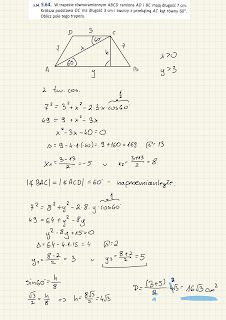 5.64. W trapezie równoramiennym ABCD ramiona AD i BC mają długość 7 cm.
Krótsza podstawa DC ma długość 3 cm i tworzy z przekątną AC kąt równy 60°.
Oblicz pole tego trapezu.
D 3 C
60°
x
7
h
7
60°
A y B
x>0
y>3
z tw. cos.
7² = 3² + x² - 2·3·x cos60°
49 = 9 + x² - 3x
x² - 3x - 40 = 0
Δ = 9 - 4·1·(-40) = 9 + 160 = 169 √Δ = 13
x₁ = (3-13)/2 = -5 ∨ x₂ = (3+13)/2 = 8
|∢BAC| = |∢ACD| = 60° - naprzemianległe
7² = 8² + y² - 2·8·y cos60°
49 = 64 + y² - 8y
y² - 8y + 15 = 0
Δ = 64 - 4·1·15 = 4 √Δ = 2
y₁ = (8-2)/2 = 3 ∨ y₂ = (8+2)/2 = 5
sin60° = h/8
√3/2 = h/8 => h = 8√3/2 = 4√3
P = (3+5)/2 · 4√3 = 16√3 cm²